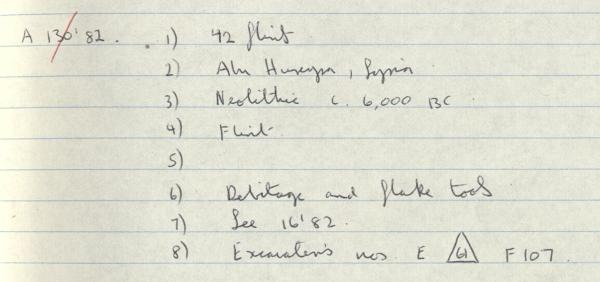 A 130'82. 1) 42 flint
2) Abu Hureyra, Syria
3) Neolithic c. 6,000 BC
4) Flint
5)
6) Debitage and flake tools
7) See 16'82.
8) Excavation's nos. E 61 F107